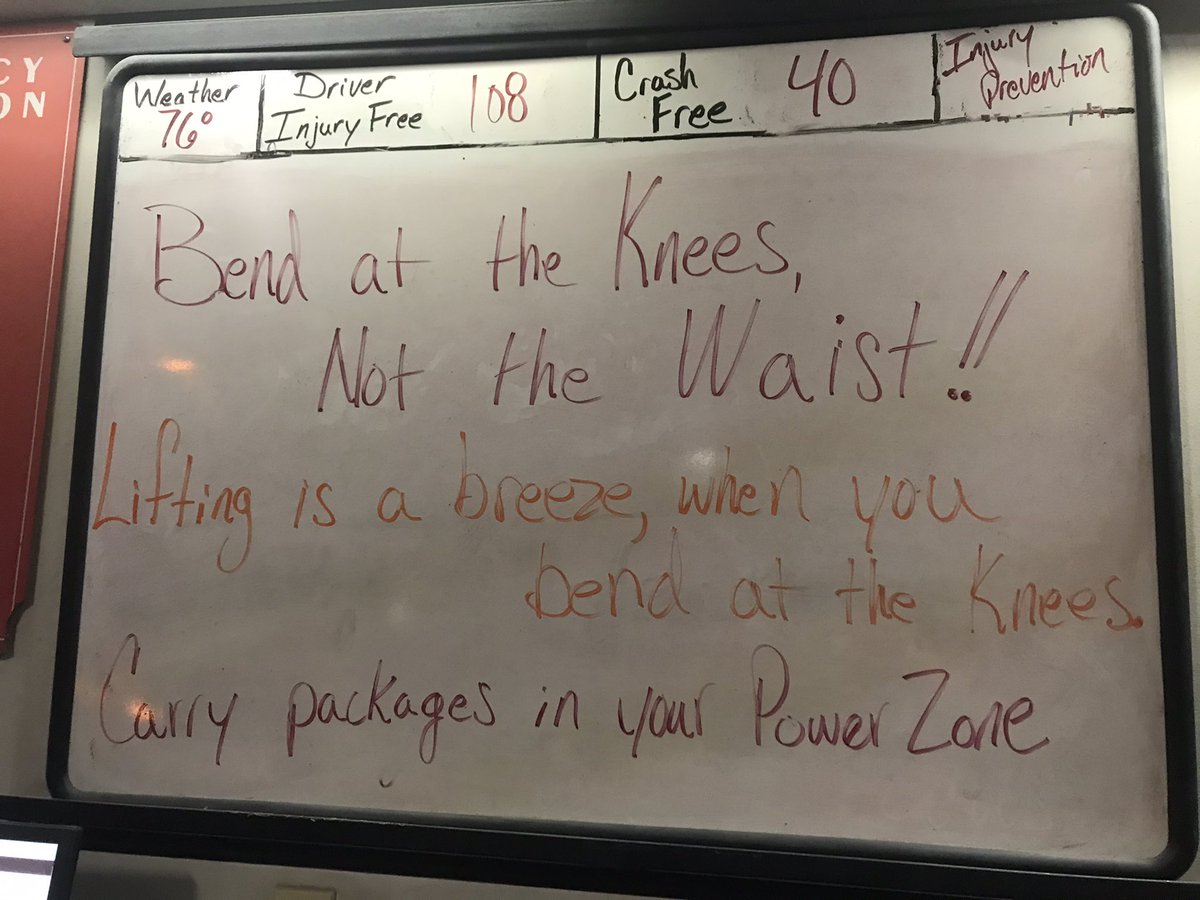 CY
ON
Weather
76°
Driver
Injury Free
108
Crash
Free
40
Injury
Prevention
Bend at the Knees,
Not the Waist!!
Lifting is a breeze, when you
bend at the Knees.
Carry packages in your Power Zone